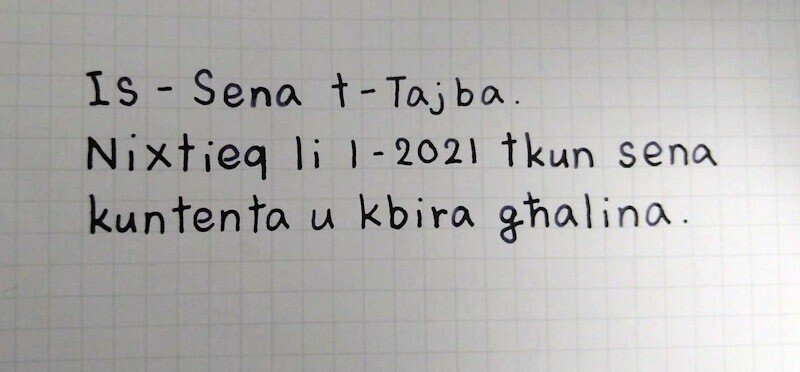 Is-Sena t-Tajba.
Nixtieq li l-2021 tkun sena
kuntenta u kbira għalina.